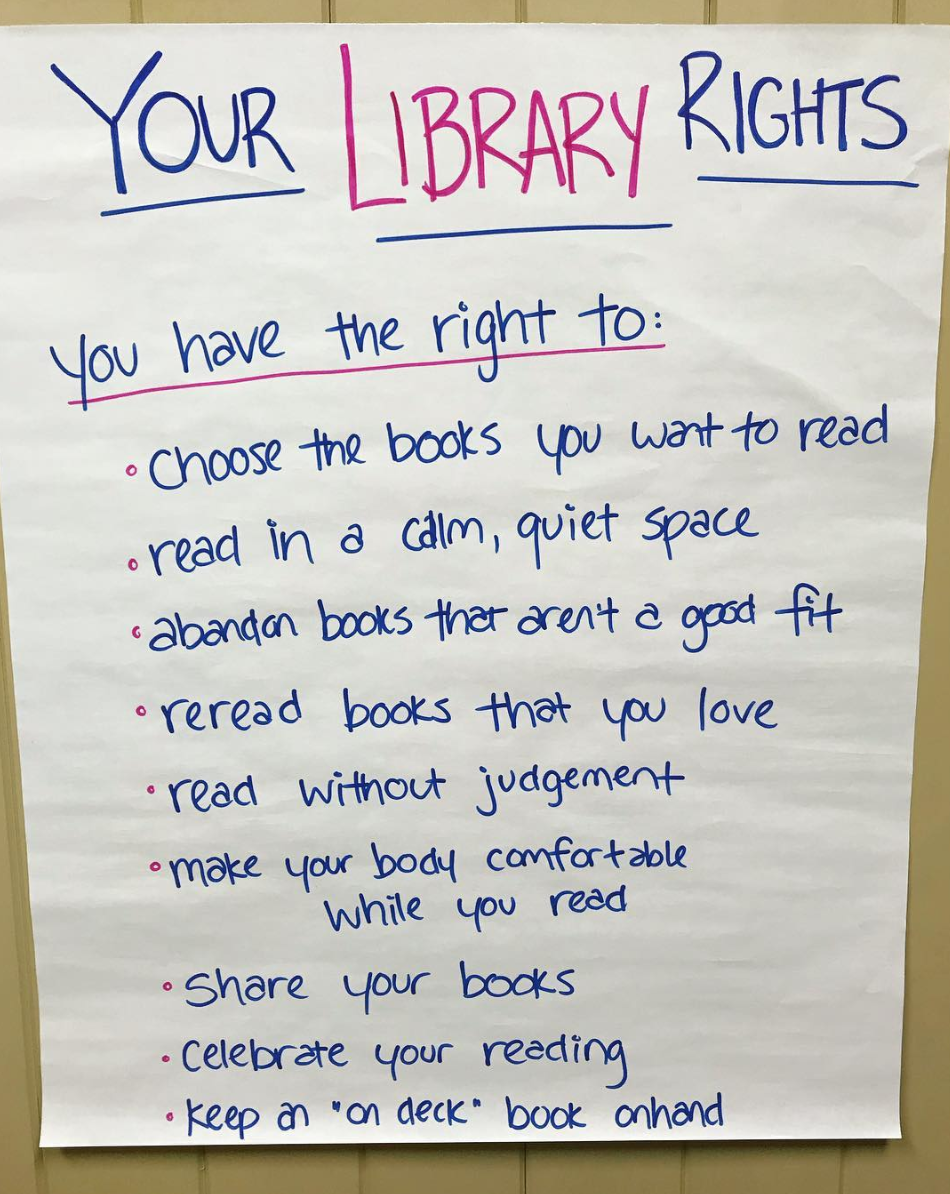 YOUR LIBRARY RIGHTS
you have the right to:
• choose the books you want to read
• read in a calm, quiet space
• abandon books that aren't a good fit
• reread books that you love
• read without judgement
• make your body comfortable
while you read
• share your books
• celebrate your reading
• keep an "on deck" book onhand